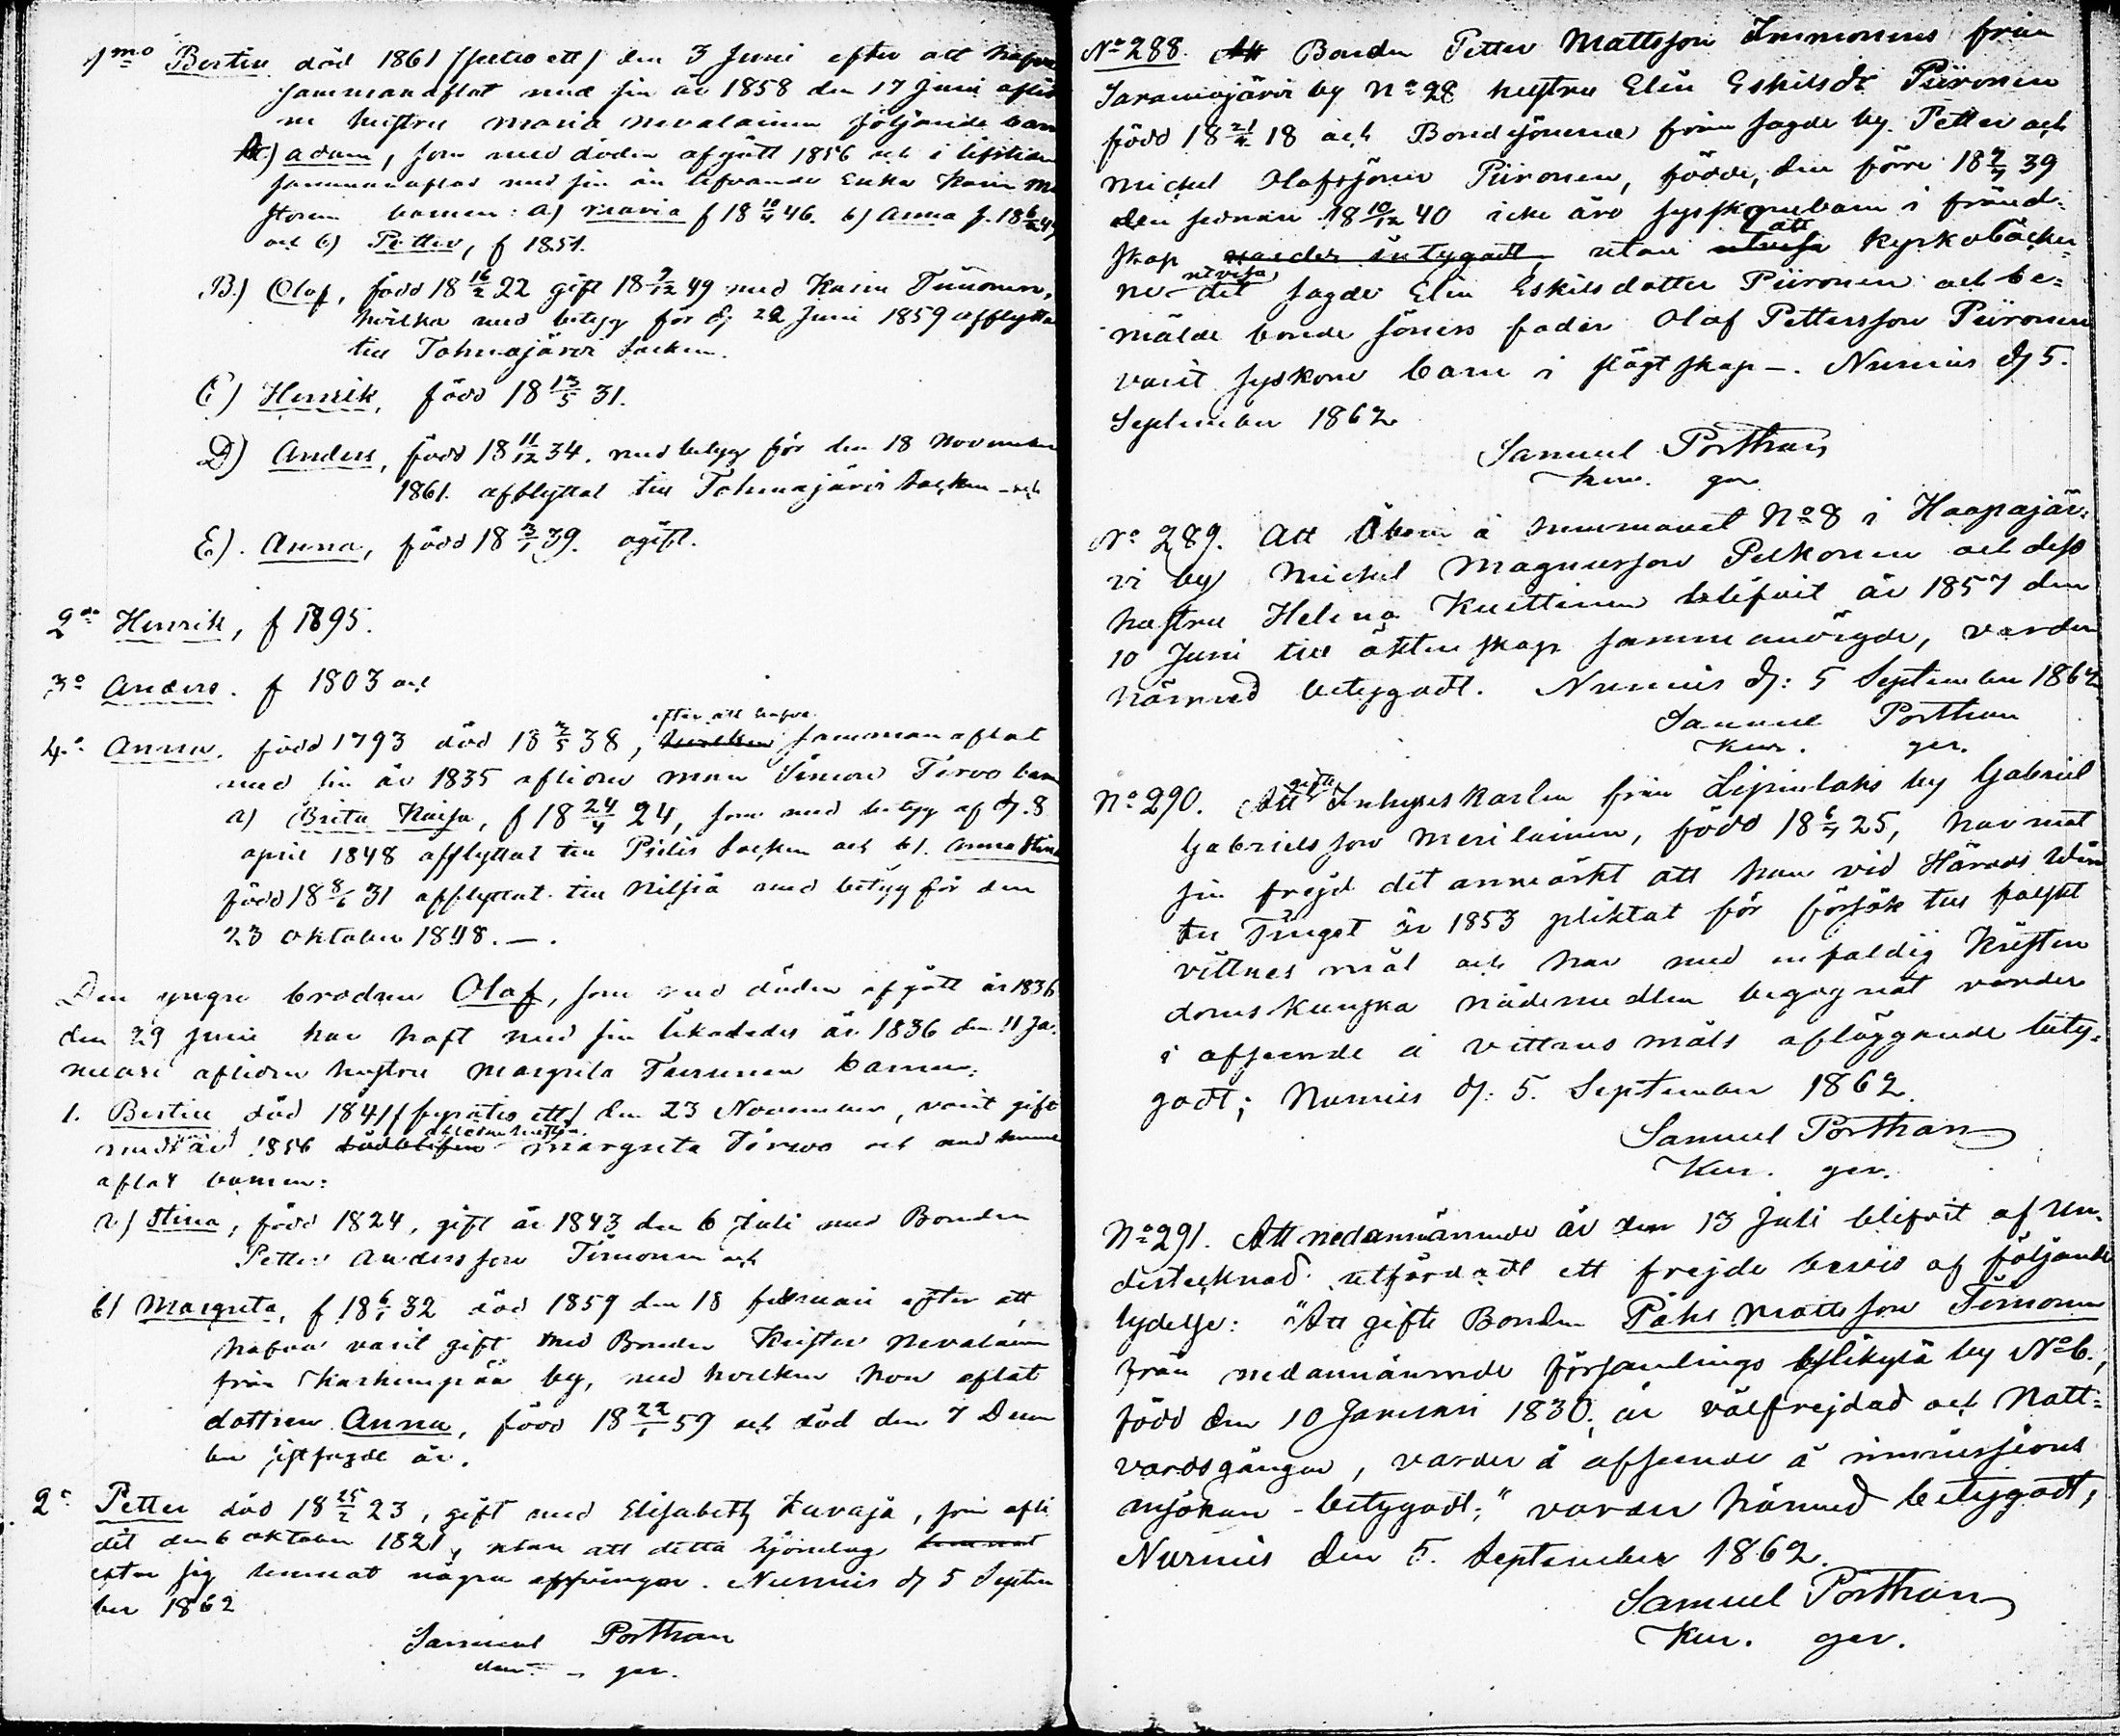 1mo Bertill död 1861 (sextio ett) den 3 Juni efter att hafva
sammanaflat med sin år 1858 den 17 Juni aflid
ne hustru Maria Nevalainen följande barn
A) Adam, som med döden afgått 1856 och i lifstiden
sammanaflat med sin än lefvande Enka Karin
barnen: a) Maria f 18 10/4 46. b) Anna f. 18 6/2 49
och c) Petter, f 1851.
B.) Olof, född 18 16/2 22 gift 18 9/12 49 med Karin Timonen,
hvilka med betyg för dj 22 Juni 1859 afflyttat
till Tohmajärvi Socken.
C) Henrik, född 18 13/5 31.
D) Anders, född 18 11/12 34. med betyg för den 18 November
1861. afflyttat till Tohmajärvi Socken och
E). Anna, född 18 3/1 39. ogift.
2do Henrik, f 1895.
3o Anders. f 1803 och
4o Anna. född 1793 död 18 2/5 38, efter att hafva sammanaflat
med sin år 1835 aflidne man Simon Tervo barn
a) Brita Kaisa, f 18 24/4 24, som med betyg af dj. 8
April 1848 afflyttat till Pielis Socken och b). Anna Stina
född 18 8/6 31 afflyttat till Nilsiä med betyg för den
23 Oktober 1848. —.
Den yngre brodren Olof, som med döden afgått år 1836
den 29 Juni har haft med sin likaledes år 1836 den 11 Ja-
nuari aflidne hustru Margreta Turunen barnen:
1. Bertill död 1841 (fyratio ett) den 23 November, varit gift
med år 1856 aflidne hustrun Margreta Tervo och med henne
aflat barnen:
a) Stina, född 1824, gift år 1843 den 6 Juli med Bonden
Petter Andersson Timonen och
b) Margreta, f 18 6/1 32 död 1859 den 18 februari efter att
hafva varit gift med Bonden Krister Nevalainen
från Karhunpää by, med hvilken hon aflat
dottren Anna, född 18 22/1 59 och död den 7 Decem
ber sistsagde år.
2o Petter död 18 25/2 23, gift med Elisabeth Kavaja, som afli
dit den 6 Oktober 1821, utan att detta hjonelag lemnat
efter sig lemnat några arfvingar. Nurmis dj 5 Septem
ber 1862
Samuel Porthan
ger.
No 288. Att Bonden Petter Mattsson Immonens från
Saramojärvi by No 28 hustru Elin Eskilsdr Piironen
född 18 21/4 18 och Bondesönerne från sagde by Petter och
Michel Olofssöner Piironen, födde, den förre 18 9/7 39
den sednare 18 10/12 40 icke äro syskonebarn i fränd-
skap varder intygadt utan att utvisa kyrkoböcker
ne utvisa det sagde Elin Eskilsdotter Piironen och be-
mälde bonde söners fader Olof Pettersson Piironen
varit syskone barn i slägtskap —. Nurmis dj 5.
September 1862
Samuel Porthan
Kur. ger.
No 289. Att Åboen å hemmanet No 8 i Haapajär-
vi by Michel Magnusson Pelkonen och dess
hustru Helena Kuittinen blifvit år 1857 den
10 Juni till äktenskap sammanvigde, varder
härmed betygadt. Nurmis dj: 5 September 1862
Samuel Porthan
Kur. ger.
No 290. Att gifte Inhyseskarlen från Lipinlaks by Gabriel
Gabrielsson Meriläinen, född 18 6/7 25, har mot
sin frejd det anmärkt att han vid Härads Vin
ter Tinget år 1853 pliktat för försök till falskt
vittnesmål och har med enfaldig Kristen
doms Kunskap nådemedlen begagnat varder
i afseende å vittnesmåls afläggande bety-
gadt; Nurmis dj: 5. September 1862.
Samuel Porthan
Kur. ger.
No 291. Att nedannämnde år den 13 Juli blifvit af Un-
dertecknad utfärdadt ett frejde bevis af följande
lydelse: "Att gifte Bonden Påhl Mattsson Timonen
från nedannämnde församlings Ylikylä by No 6.,
född den 10 Januari 1830, är välfrejdad och Natt-
vardsgången, varder i afseende å immissions
ansökan - betygadt;" varder härmed betygadt,
Nurmis den 5. September 1862.
Samuel Porthan
Kur. ger.